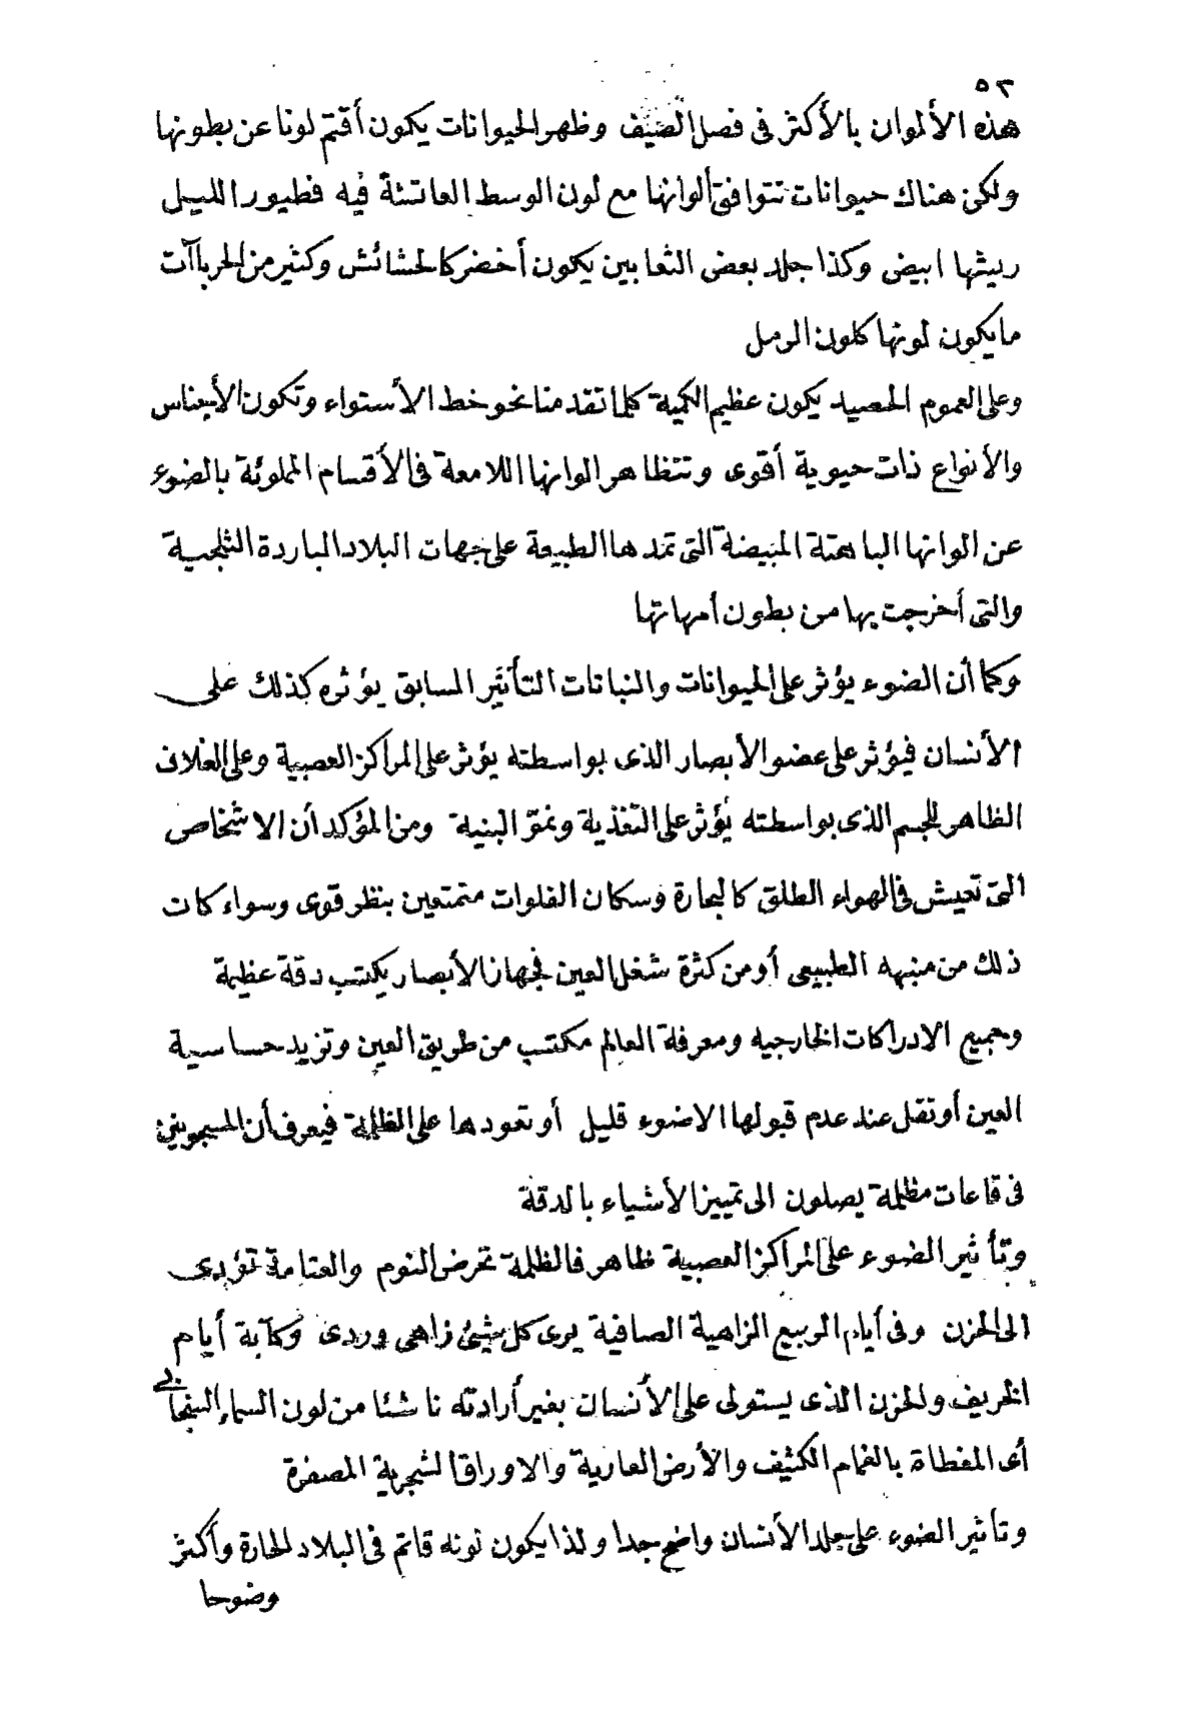 ٥٢
هذه الألوان بالأكثر فى فصل الصيف وظهر الحيوانات يكون أقتم لونا عن بطونها
ولكن هناك حيوانات تتوافق ألوانها مع لون الوسط العائشة فيه فطيور الليل
ريشها ابيض وكذا جلد بعض الثعابين يكون أخضر كالحشائش وكثير من الحرباآت
ما يكون لونها كلون الرمل
وعلى العموم الحصيد يكون عظيم الكمية كلما تقدمنا نحو خط الأستواء وتكون الأجناس
والأنواع ذات حيوية أقوى وتتظاهر الوانها اللامعة فى الأقسام المملوئة بالضوء
عن الوانها الباهتة المبيضة التى تمدها الطبيعة على جهات البلاد الباردة الثلجية
والتى أخرجت بها من بطون أمهاتها
وكما أن الضوء يؤثر على الحيوانات والنباتات التأثير السابق يؤثره كذلك على
الأنسان فيؤثر على عضو الأبصار الذى بواسطته يؤثر على المراكز العصبية وعلى الغلاف
الظاهر للجسم الذى بواسطته يؤثر على التغذية ونمو البنية ومن المؤكد أن الاشخاص
التى تعيش فى الهواء الطلق كالبحارة وسكان الفلوات متمتعين بنظر قوى وسواء كان
ذلك من منبهه الطبيعى أو من كثرة شغل العين فجهاز الأبصار يكتسب دقة عظيمة
وجميع الادراكات الخارجيه ومعرفة العالم مكتسب من طريق العين وتزيد حساسية
العين أو تقل عند عدم قبولها الا ضوء قليل أو تعودها على الظلمة فيعرف أن المسجونين
فى قاعات مظلمة يصلون الى تمييز الأشياء بالدقة
وتأثير الضوء على المراكز العصبية ظاهر فالظلمة تحرض النوم والعتامة تؤدى
الى الحزن وفى أيام الربيع الزاهية الصافية يرى كل شيئ زاهى وردى وكآبة أيام
الخريف والحزن الذى يستولى على الأنسان بغير أرادته ناشئا من لون السماء السنجابى
أى المغطاة بالغمام الكثيف والأرض العارية والاوراق الشجرية المصفرة
وتاثير الضوء على جلد الأنسان واضح جدا ولذا يكون لونه قاتم فى البلاد الحارة وأكثر
وضوحا